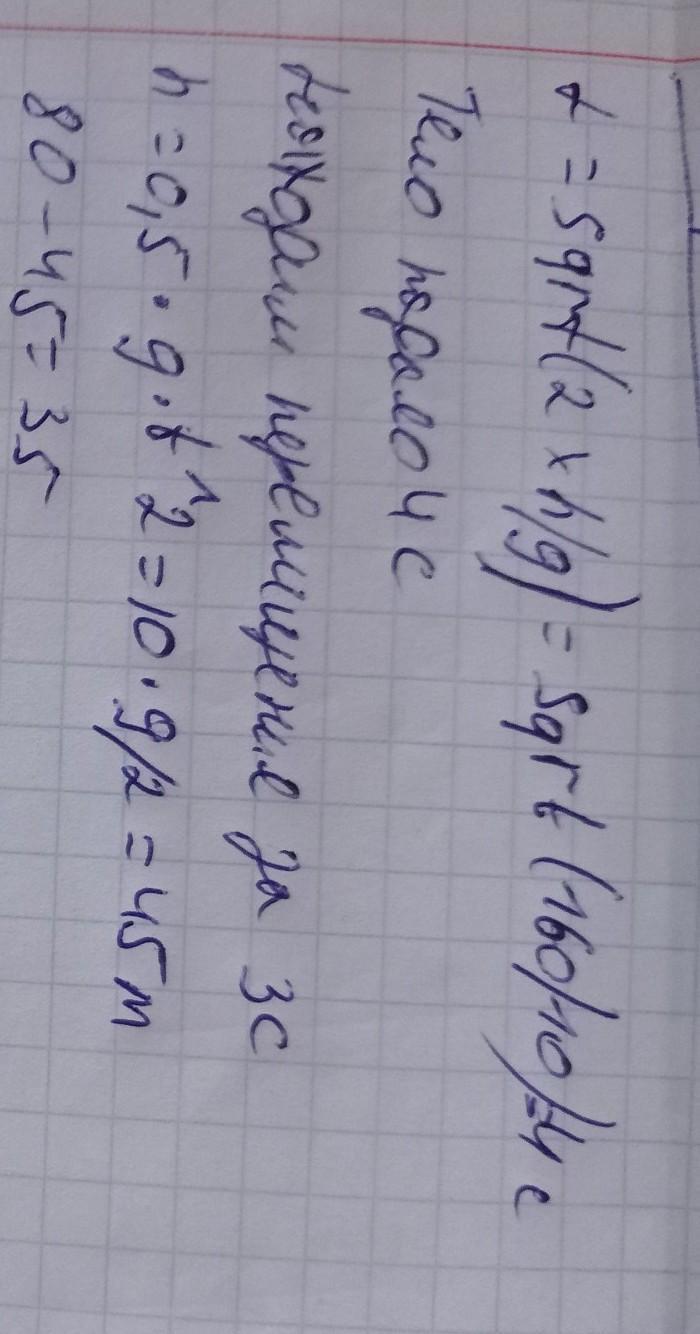 t = sqrt(2 x h/g) = sqrt(160/10)=4 c
Тело падало 4 с
находим перемищение за 3с
h = 0,5 · g · t^2 = 10 · 9/2 = 45 m
80 - 45 = 35